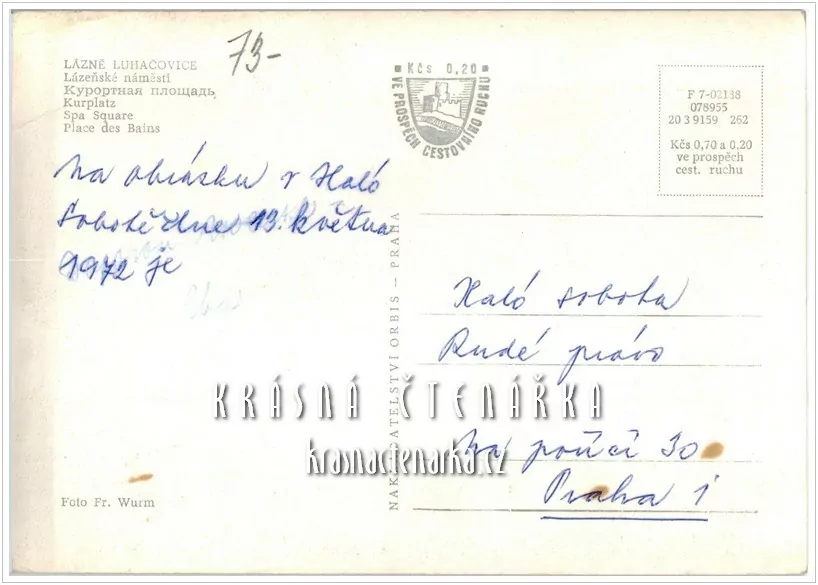 73-
LÁZNĚ LUHAČOVICE
Lázeňské náměstí
Курортная площадь
Kurplatz
Spa Square
Place des Bains
Kčs 0,20
VE PROSPĚCH CESTOVNÍHO RUCHU
F 7-02138
078955
20 3 9159 262
Kčs 0,70 a 0,20
ve prospěch
cest. ruchu
Na obrásku v Haló
Sobotě dne 13. května
1972 je
NAKLADATELSTVÍ ORBIS – PRAHA
Haló sobota
Rudé právo
Na poříčí 30
Praha 1
KRÁSNÁ ČTENÁŘKA
krasnactenarka.cz
Foto Fr. Wurm